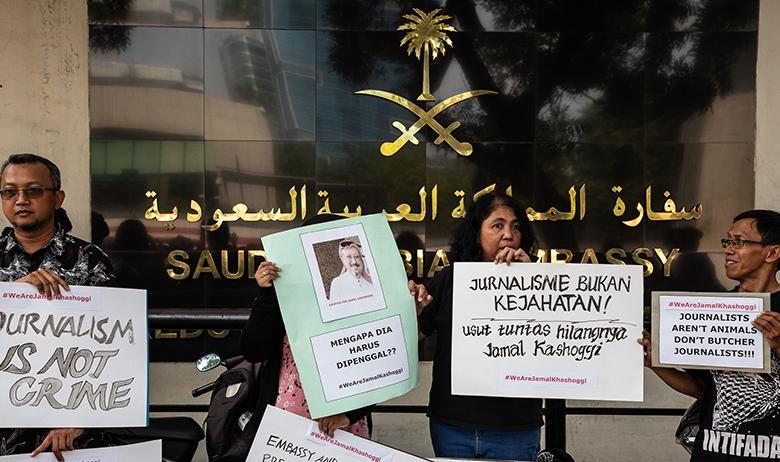 سفارة المملكة العربية السعودية
EMBASSY
#WeAreJamalKhashoggi
JOURNALISM
IS NOT
CRIME
MENGAPA DIA
HARUS
DIPENGGAL??
#WeAreJamalKhashoggi
JURNALISME BUKAN
KEJAHATAN!
usut tuntas hilangnya
Jamal Kashoggi
#WeAreJamalKhashoggi
#WeAreJamalKhashoggi
JOURNALISTS
AREN'T ANIMALS
DON'T BUTCHER
JOURNALISTS!!!
EMBASSY AND
INTIFADA